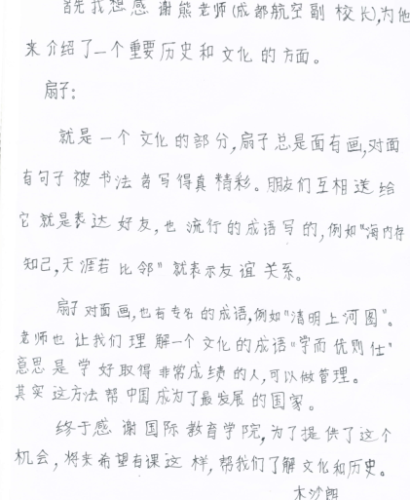 首先我想感谢熊老师(成都航空副校长),为他
来介绍了一个重要历史和文化的方面。
扇子:
就是一个文化的部分,扇子总是面有画,对面
有句子被书法者写得真精彩。朋友们互相送给
它就是表达好友,也流行的成语写的,例如"海内存
知己,天涯若比邻"就表示友谊关系。
扇子对面画,也有专名的成语,例如"清明上河图"。
老师也让我们理解一个文化的成语"学而优则仕"
意思是学好取得非常成绩的人,可以做管理。
其实这方法帮中国成为了最发展的国家。
终于感谢国际教育学院,为了提供了这个
机会,将来希望有课这样,帮我们了解文化和历史。